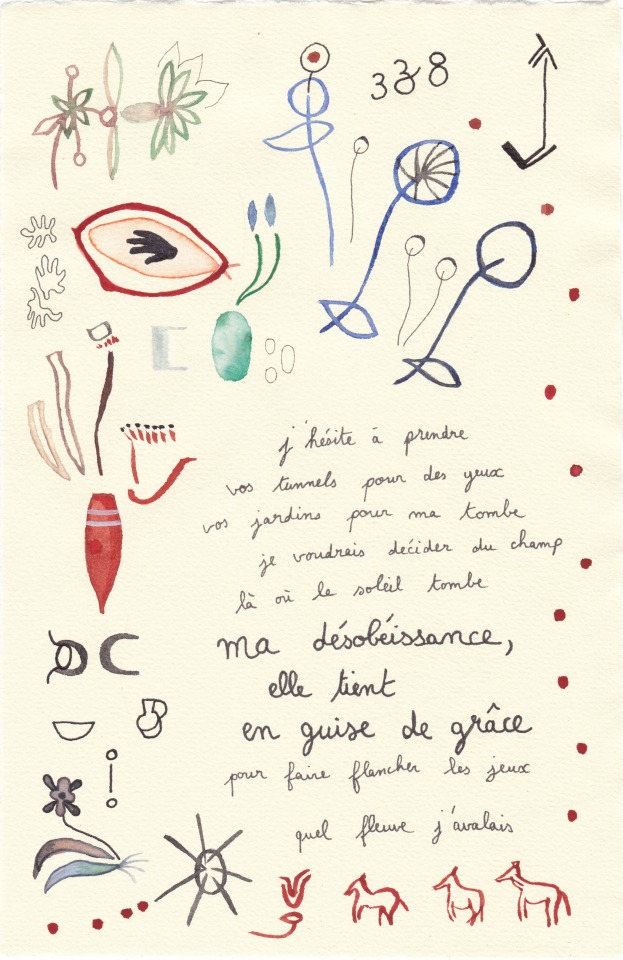 338
j'hésite à prendre
vos tunnels pour des yeux
vos jardins pour ma tombe
je voudrais décider du champ
là où le soleil tombe
ma désobéissance,
elle tient
en guise de grâce
pour faire flancher les jeux
quel fleuve j'avalais